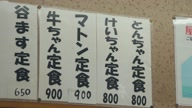 とんちゃん定食
800
けいちゃん定食
800
マトン定食
900
牛ちゃん定食
900
谷ます定食
650